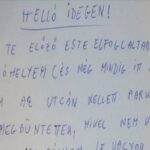 HELLÓ IDEGEN!
TE ELŐZŐ ESTE ELFOGLALTAD
ÓHELYEM (ÉS MÉG MINDIG ITT
AZ UTCÁN KELLETT PARK
MEGBÜNTETTEK, MIVEL NEM V